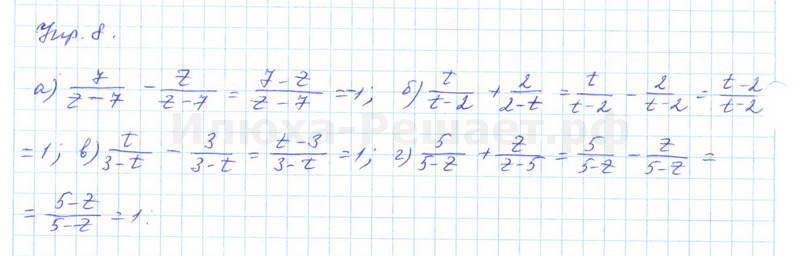 Упр. 8.
а) 7/(z-7) - z/(z-7) = (7-z)/(z-7) = -1; б) t/(t-2) + 2/(2-t) = t/(t-2) - 2/(t-2) = (t-2)/(t-2)
= 1; в) t/(3-t) - 3/(3-t) = (t-3)/(3-t) = -1; г) 5/(5-z) + z/(z-5) = 5/(5-z) - z/(5-z) =
= (5-z)/(5-z) = 1.
Илюха-Решает.рф